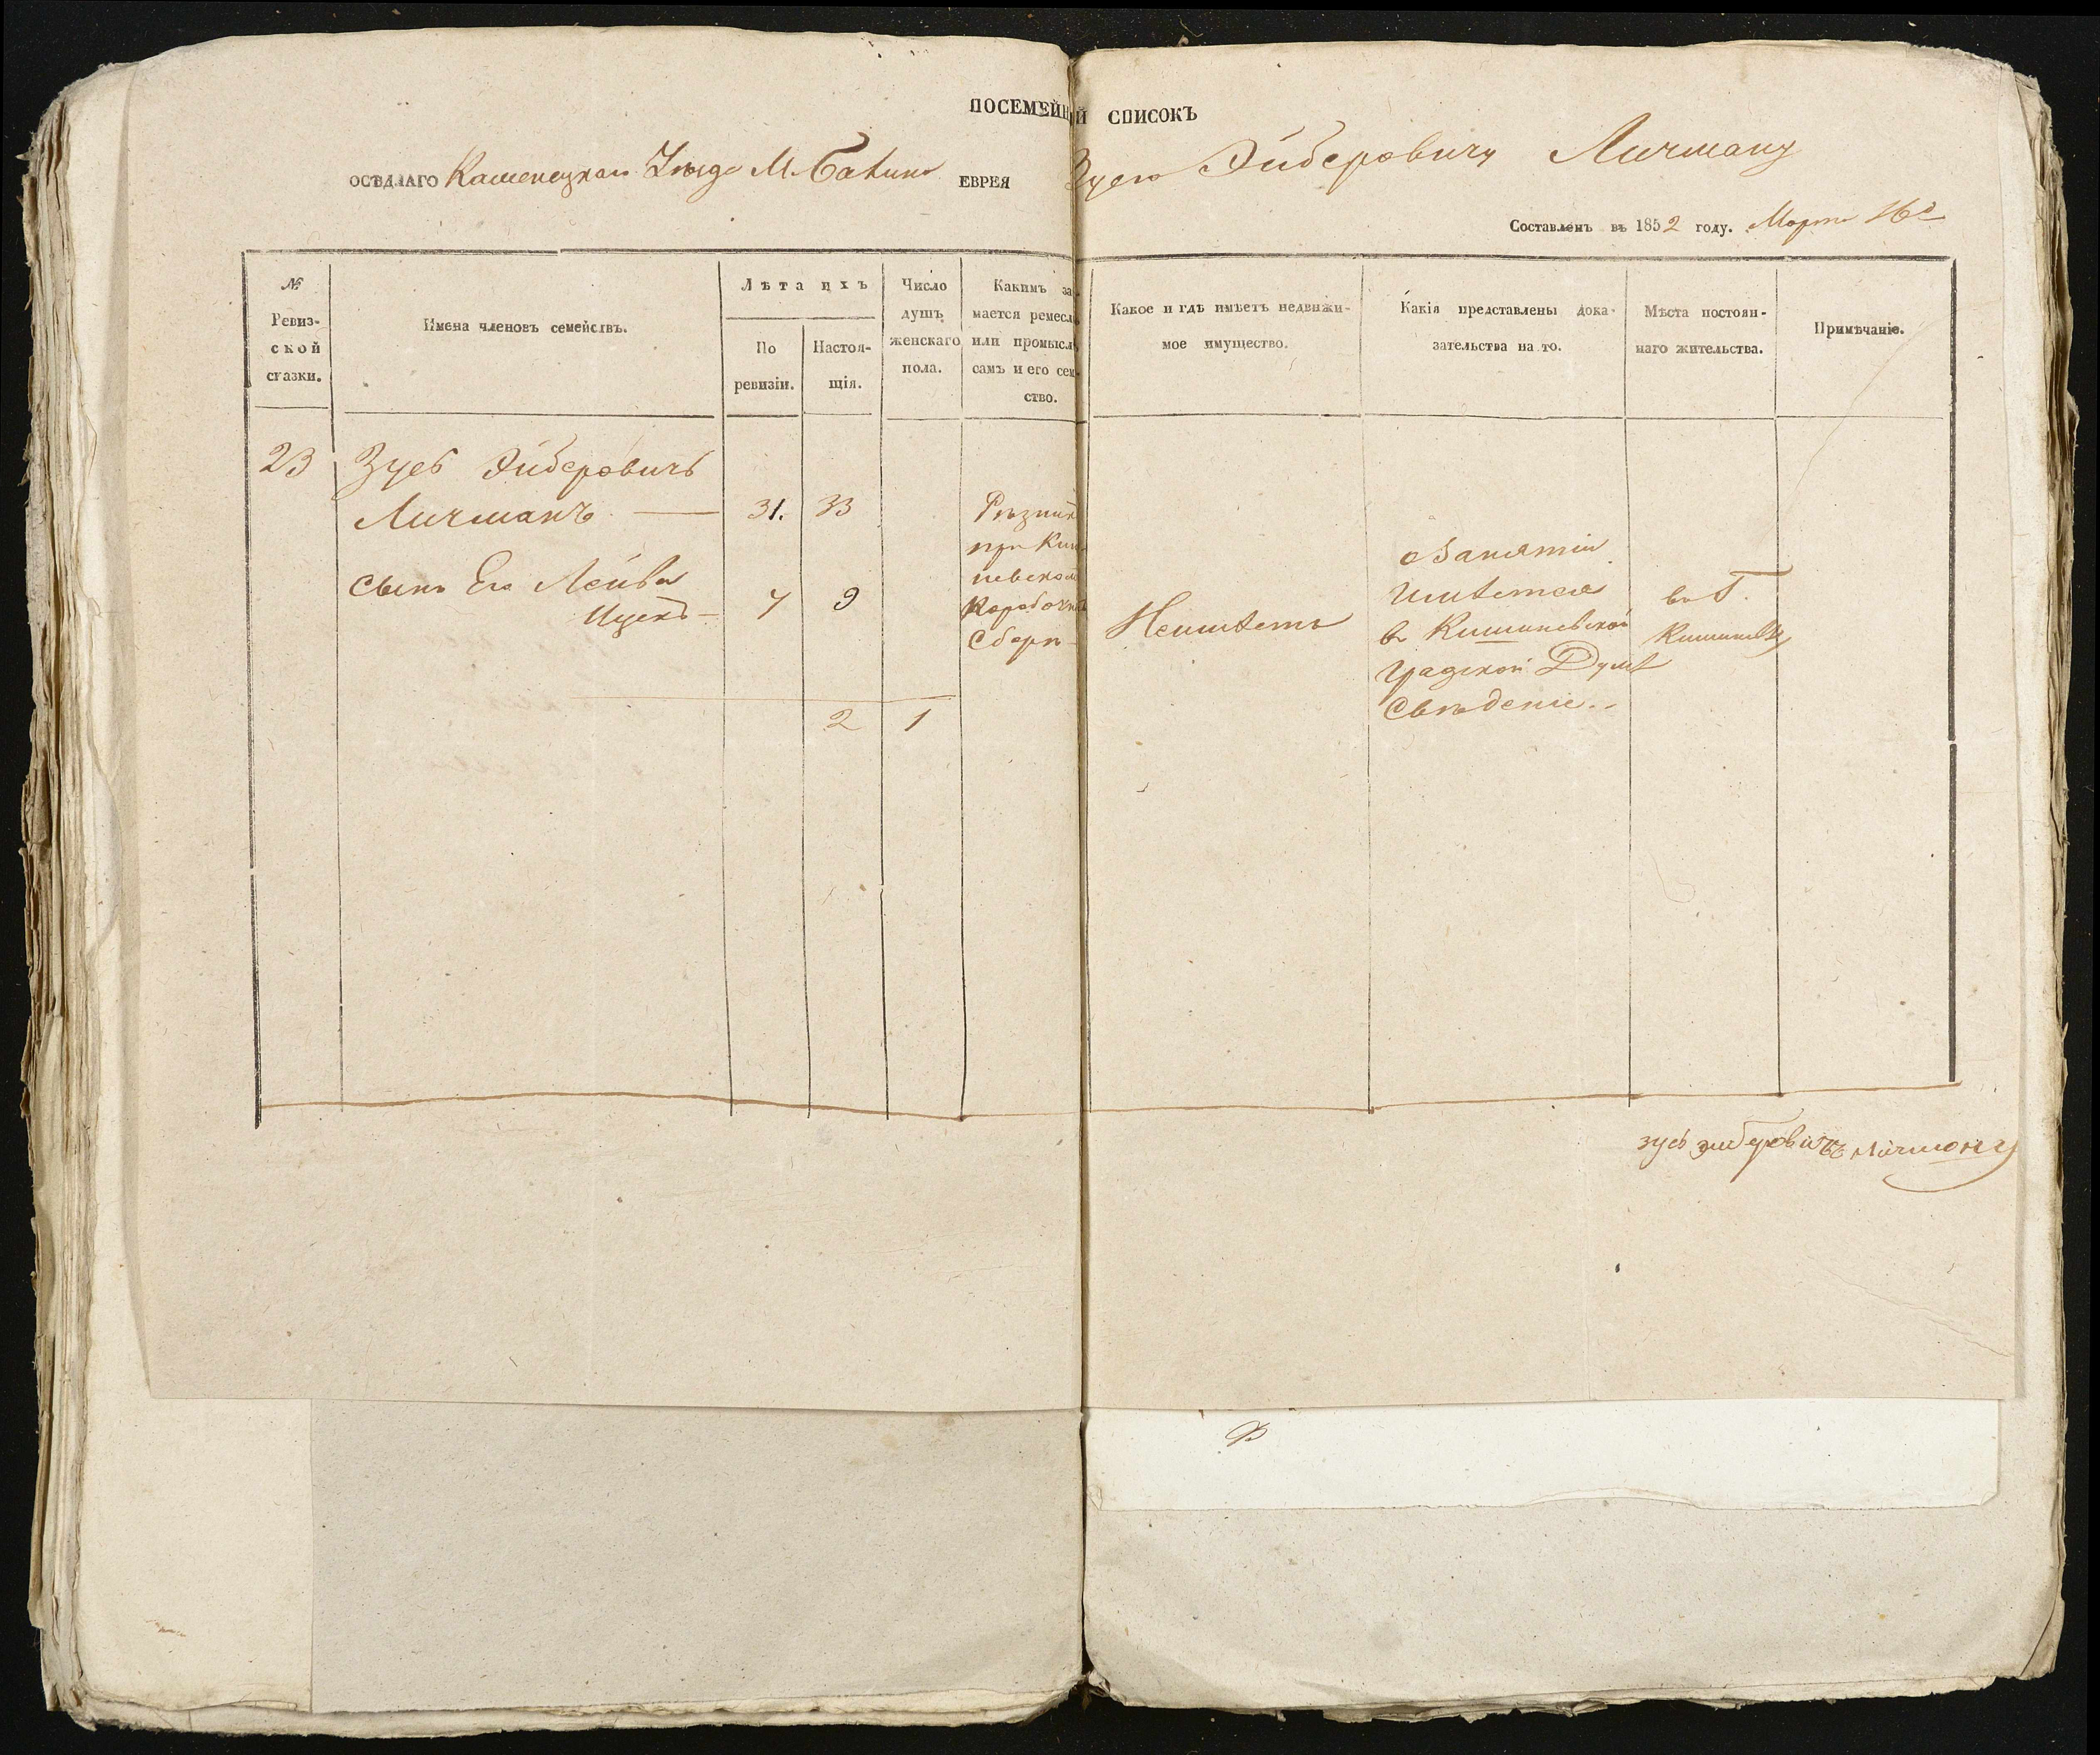 ПОСЕМЕЙНЙ СПИСОКЪ
ОСѢДЛАГО Каменецкаго Уѣзда М. ЕВРЕЯ Зусю Эйберовичу Личману
Составленъ въ 1852 году. Марта 16 д
№ Ревиз-
ской
сказки.
Имена членовъ семействъ.
Лѣта ихъ
По
ревизіи.
Настоя-
щія.
Число
душъ
женскаго
пола.
Какимъ за
мается ремесл
или промысл
самъ и его сем
ство.
Какое и гдѣ имѣетъ недвижи-
мое имущество.
Какія представлены дока-
зательства на то.
Мѣста постоян-
наго жительства.
Примѣчаніе.
23 Зусь Эйберовичъ
Личманъ — 31. 33
Сынъ Его Лейба
Ицекъ — 7 9
2 1
Рѣзникъ
при Киши
невскомъ
Коробочн
Сборѣ
Неимѣетъ
О Занятіи
Имѣется
в Кишиневской
Градской Думѣ
Свѣденіе..
въ Г.
Кишиневѣ
зусь эйберовичъ личманъ